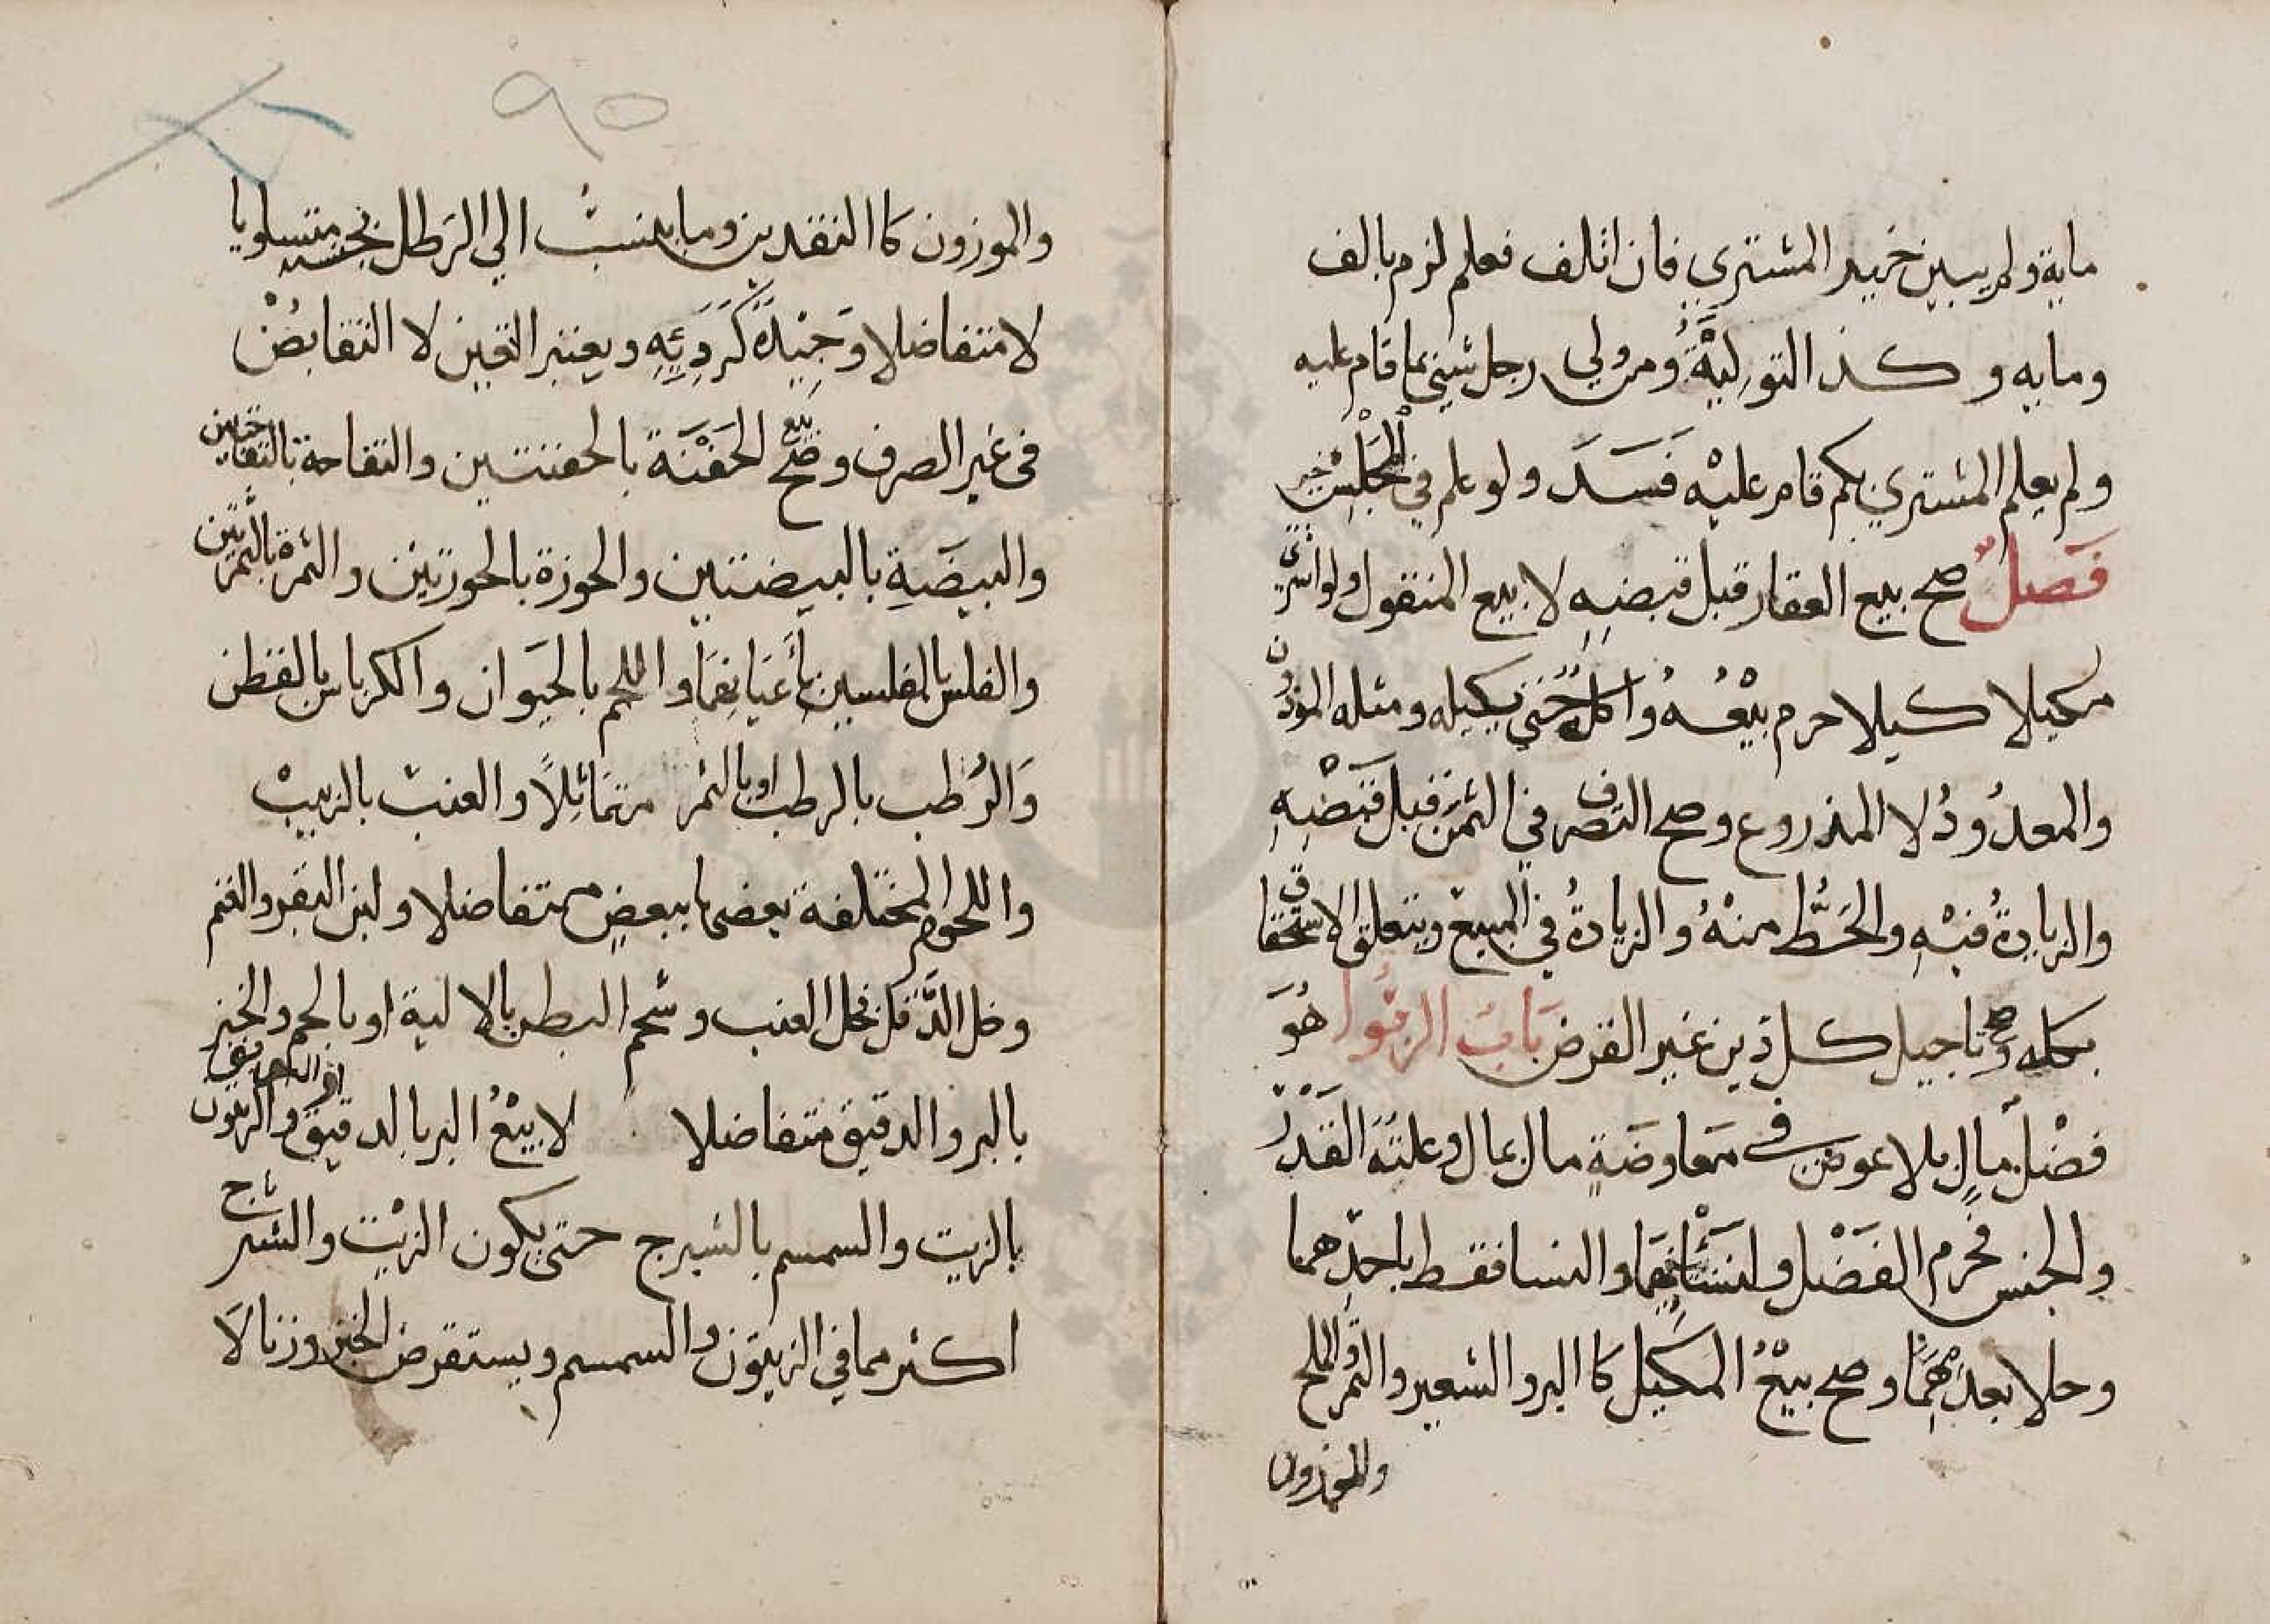 ماية ولم يبين خير المشتري فان اتلف فعلم لزم بالف
ومايه وكذا التوليةُ ومن ولي رجل شيئ بما قام عليه
ولم يعلم المشتري بكم قام عليْه فَسَدَ ولو علم في المجْلس خير
فَصلٌ صح بيع العقار قبل قبضه لا بيع المنقول ولو اشتري
مكيلا كيلا حرم بيْعُهُ واكله حتي يكيله ومثله الموزون
والمعدُودُ لا المذروع وصح التصرف في الثمن قبل قبْضِهِ
والزيادةُ فيْهِ والحَطُّ منْهُ والزيادةُ في المبيع ويتعلق الاستحقاق
بكله وصح تاجيل كل دين غير القرض بَابُ الرّبوا هُوَ
فضْل مالٍ بلا عوض في مُعاوضَةٍ مال بمال وعلتهُ القَدْرُ
والجنس فحرم الفَضْل والنسَأْ بهمَا والنسا فقط باحدهما
وحلا بعدمهِمَا وصح بيْعُ المكيل كا البر والشعير والتمر والملح
والموزون
٩٥
والموزون كا النقدين وما ينسبُ الي الرَطل بجنسه متساويا
لا متفاضلا وَجيّدهُ كَرَدِيّئِهِ ويعتبر التعيين لا التقابُضْ
في غير الصرف وصح بيع الحَفْنَة بالحفنتين والتفاحة بالتفاحتين
والبيضَةِ بالبيضتين والجوزة بالجوزتين والتمرة بالتمرتين
والفلس بالفلسين بأعيَانِهمَا واللحم بالحيَوان والكرباس بالقطن
وَالرُطب بالرطب او بالتمر متمَاثِلاً والعنب بالزبيبْ
واللحوم المختلفة بعضها ببعضٍ متفاضلا ولبن البقر والغنم
وخل الدَّقل بخل العنب وشحم البطن بالالية او بالحم والخبز
بالبر والدقيق متفاضلا لا بيْعُ البر بالدقيق او السويق والزيتون
بالزيت والسمسم بالشيرج حتى يكون الزيْت والشيرج
اكثر مما في الزيتون والسمسم ويستقرض الخبز وزنا لَا